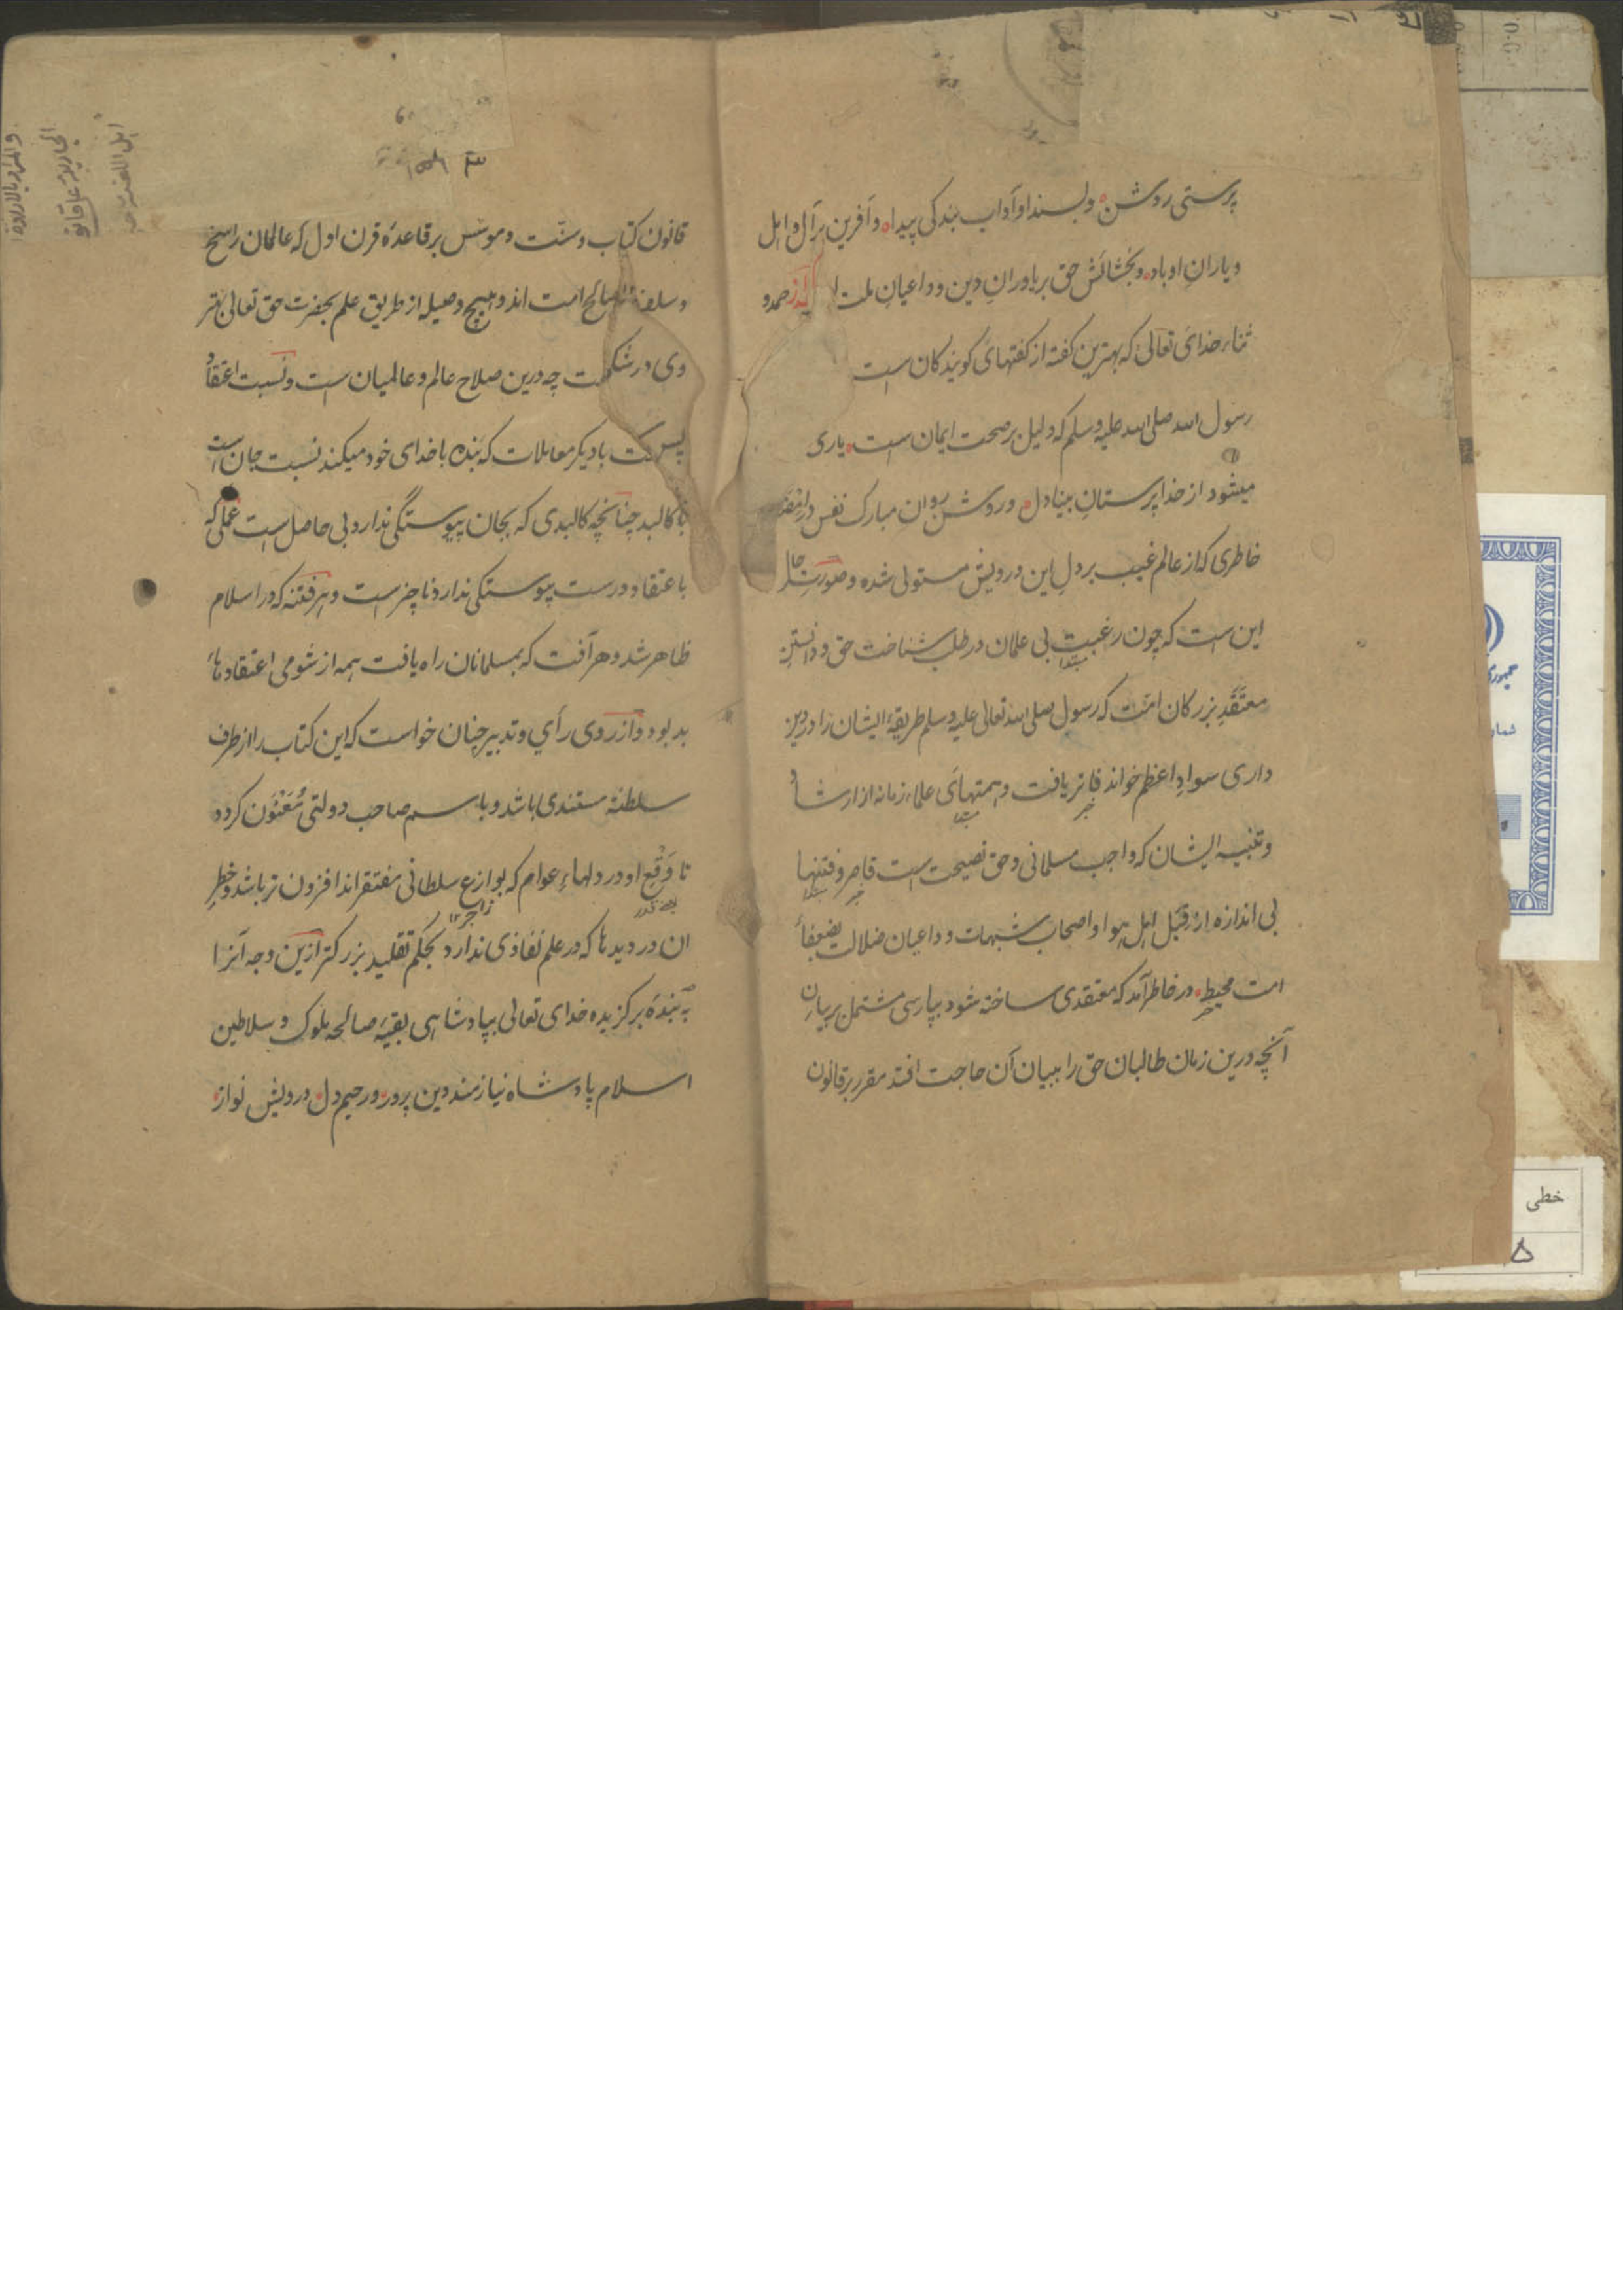 پرستی روشن و بسند او آداب بندکی پیدا و آفرین بر آل و اهل
و یاران او باد و بخشائش حق بر یاوران دین و داعیان ملت حمد و
ثناء خدای تعالی که بهترین کفته از کفتهای کویندکان است
رسول الله صلی الله علیه وسلم که دلیل بر صحت ایمان است یاری
میشود از خدا پرستان بینادل و روشن روان مبارک نفس در
خاطری که از عالم غیب بر دل این درویش مستولی شده و صورت حال
این است که چون رغبت بی علمان در طلب شناخت حق و دانستن
معتقد بزرکان امت که رسول صلی الله تعالی علیه وسلم طریقۀ ایشان را در دین
داری سواد اعظم خواند فاتر یافت و همتهای علماء زمانه از ارشاد
و تنبیه ایشان که واجب مسلمانی و حق نصیحت است قاصر و فتنها
بی اندازه از قبل اهل هوا و اصحاب شبهات و داعیان ضلالت بضعفاء
امت محیط در خاطر آمد که معتقدی ساخته شود بپارسی مشتمل بر بیان
آنچه درین زمان طالبان حق را ببیان آن حاجت افتد مقرر بر قانون
قانون کتاب و سنت و موسس بر قاعدۀ قرن اول که عالمان راسخ
و سلف صالح امت اند و هیچ وصیله از طریق علم بحضرت حق تعالی بهتر
وی در چه درین صلاح عالم و عالمیان است و نسبت اعتقاد
با دیکر معاملات که بنده با خدای خود میکند نسبت جان است
با کالبد چنانچه کالبدی که بجان پیوستگی ندارد بی حاصل است عملی که
باعتقاد درست پیوستکی ندارد ناچیز است و هر فتنه که در اسلام
ظاهر شد و هر آفت که بمسلمانان راه یافت همه از شومی اعتقادهاء
بد بود و از روی رأی و تدبیر چنان خواست که این کتاب را از طرف
سلطنة مستندی باشد و باسم صاحب دولتی مُعَنْوَن کرده
تا وَقْع او در دلهاء عوام که بوازع سلطانی مفتقر اند افزون تر باشد و خطر
زاجر ۱۲
ان در دیدها که در علم نفاذی ندارد بحکم تقلید بزرکتر ازین وجه آنرا
به بندۀ برکزیده خدای تعالی بپادشاهی بقیۀ صالحه ملوک و سلاطین
اسلام پادشاه نیازمند دین پرور و رحیم دل درویش نواز
خطی
۵